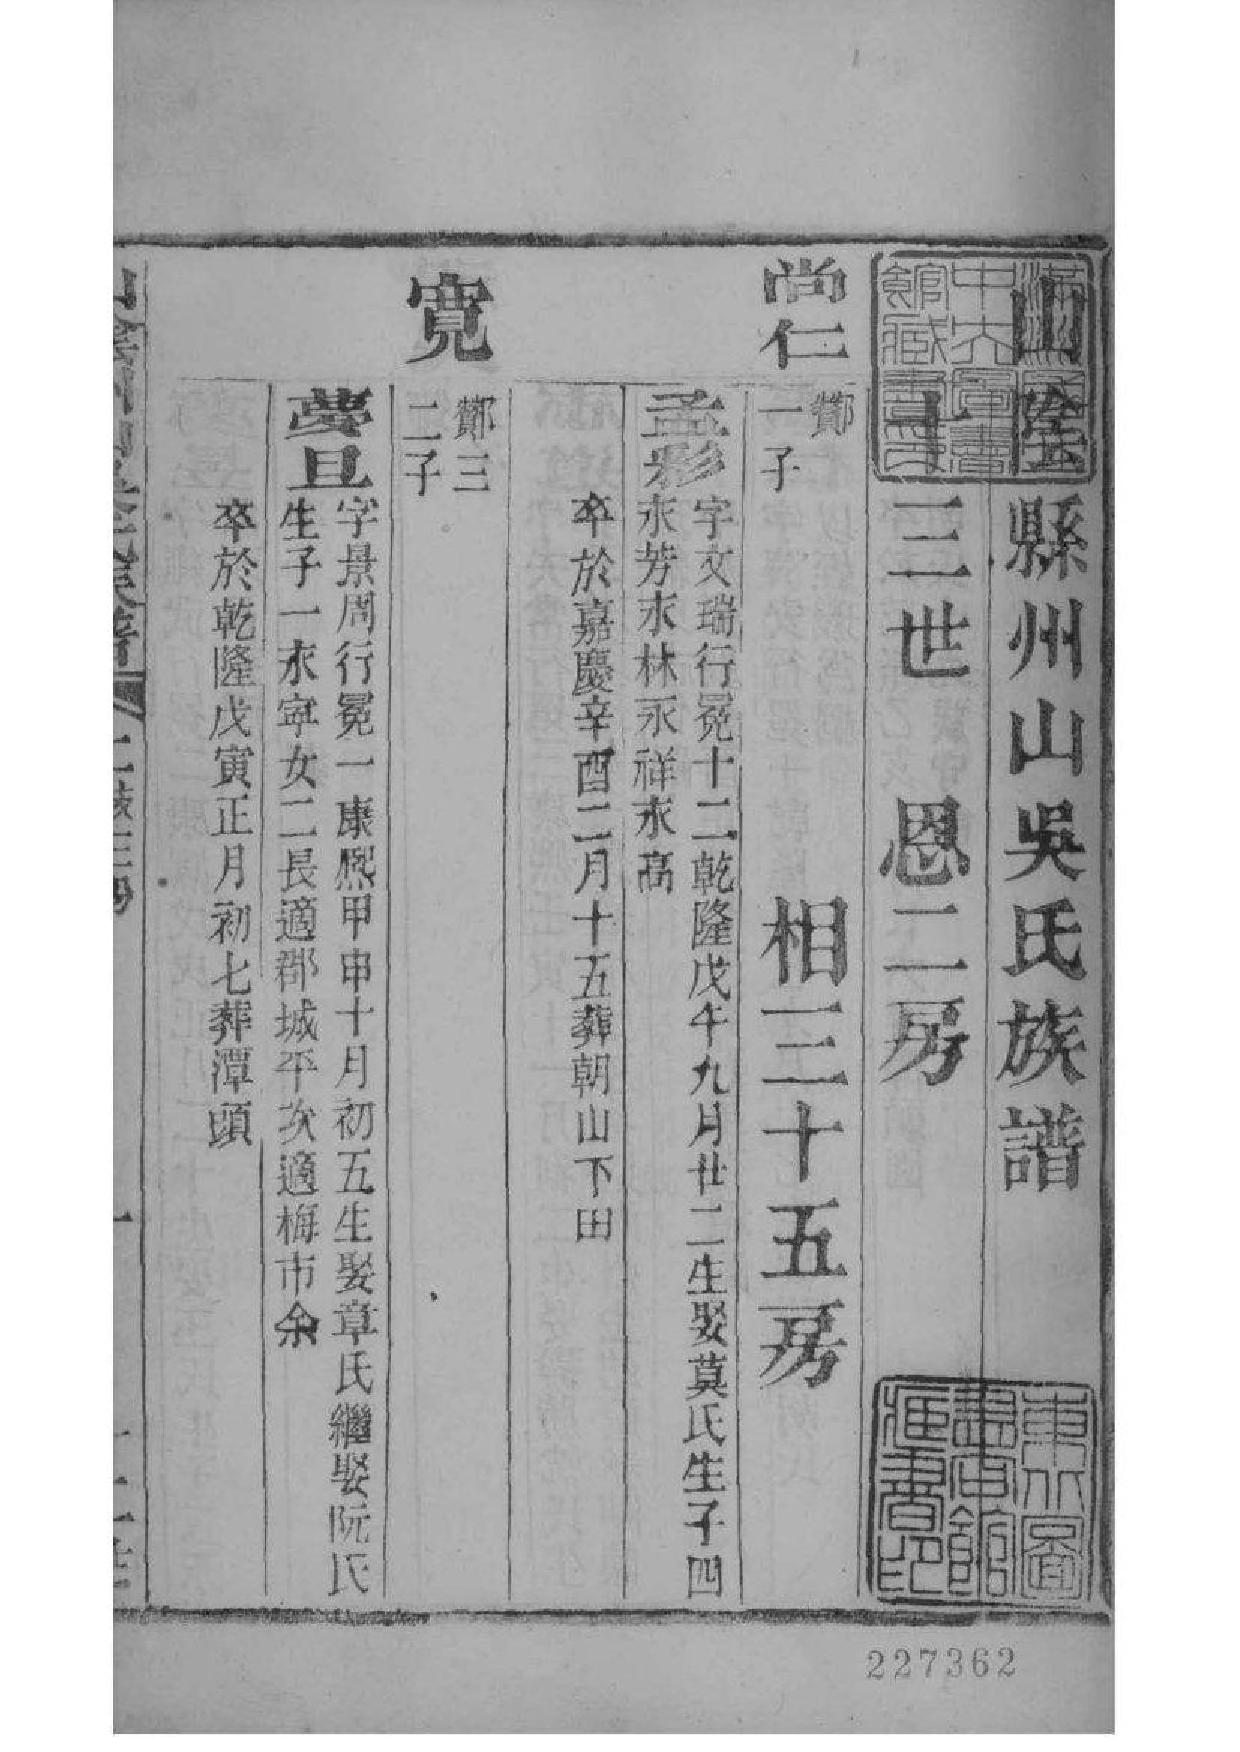 山陰縣州山吳氏族譜
十三世 恩二房
相三十五房
尚仁
鄼
一子
孟彩
字文瑞行冕十二乾隆戊午九月廿二生娶莫氏生子四
永芳永林永祥永高
卒於嘉慶辛酉二月十五葬朝山下田
寬
鄼三
二子
夢旦
字景周行冕一康熙甲申十月初五生娶章氏繼娶阮氏
生子一永寧女二長適郡城平次適梅市余
卒於乾隆戊寅正月初七葬潭頭
227362